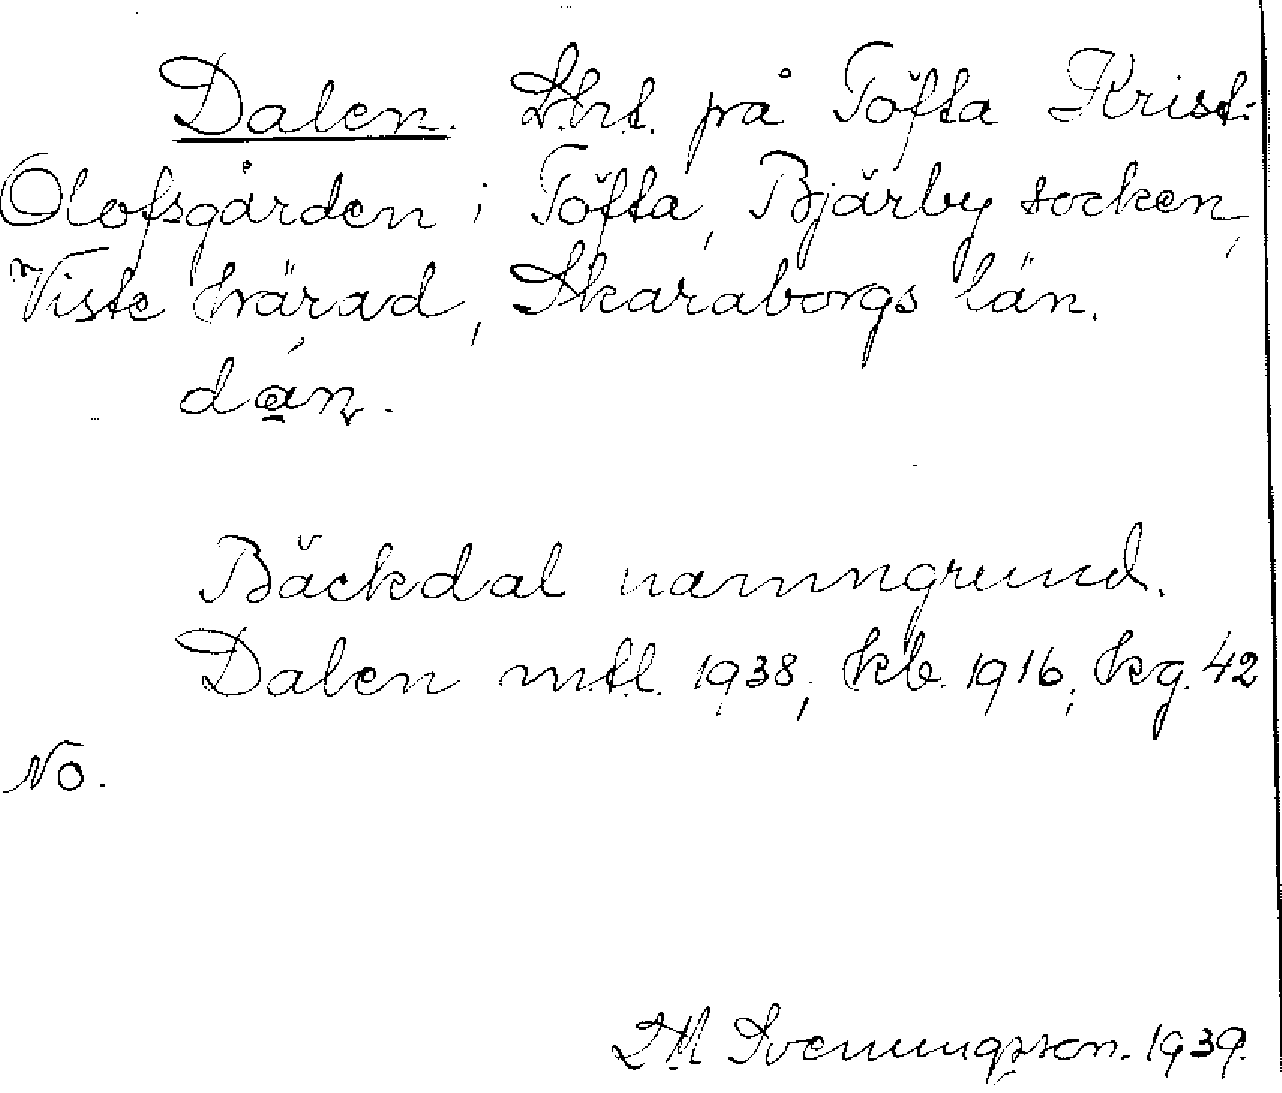 Dalen. Lht. på Töfta Krist-
Olofsgården i Töfta, Bjärby socken,
Viste härad, Skaraborgs län.
dán.
Bäckdal namngrund.
Dalen mtl. 1938, kb. 1916, kg. 42
No.
Svenungsson. 1939.